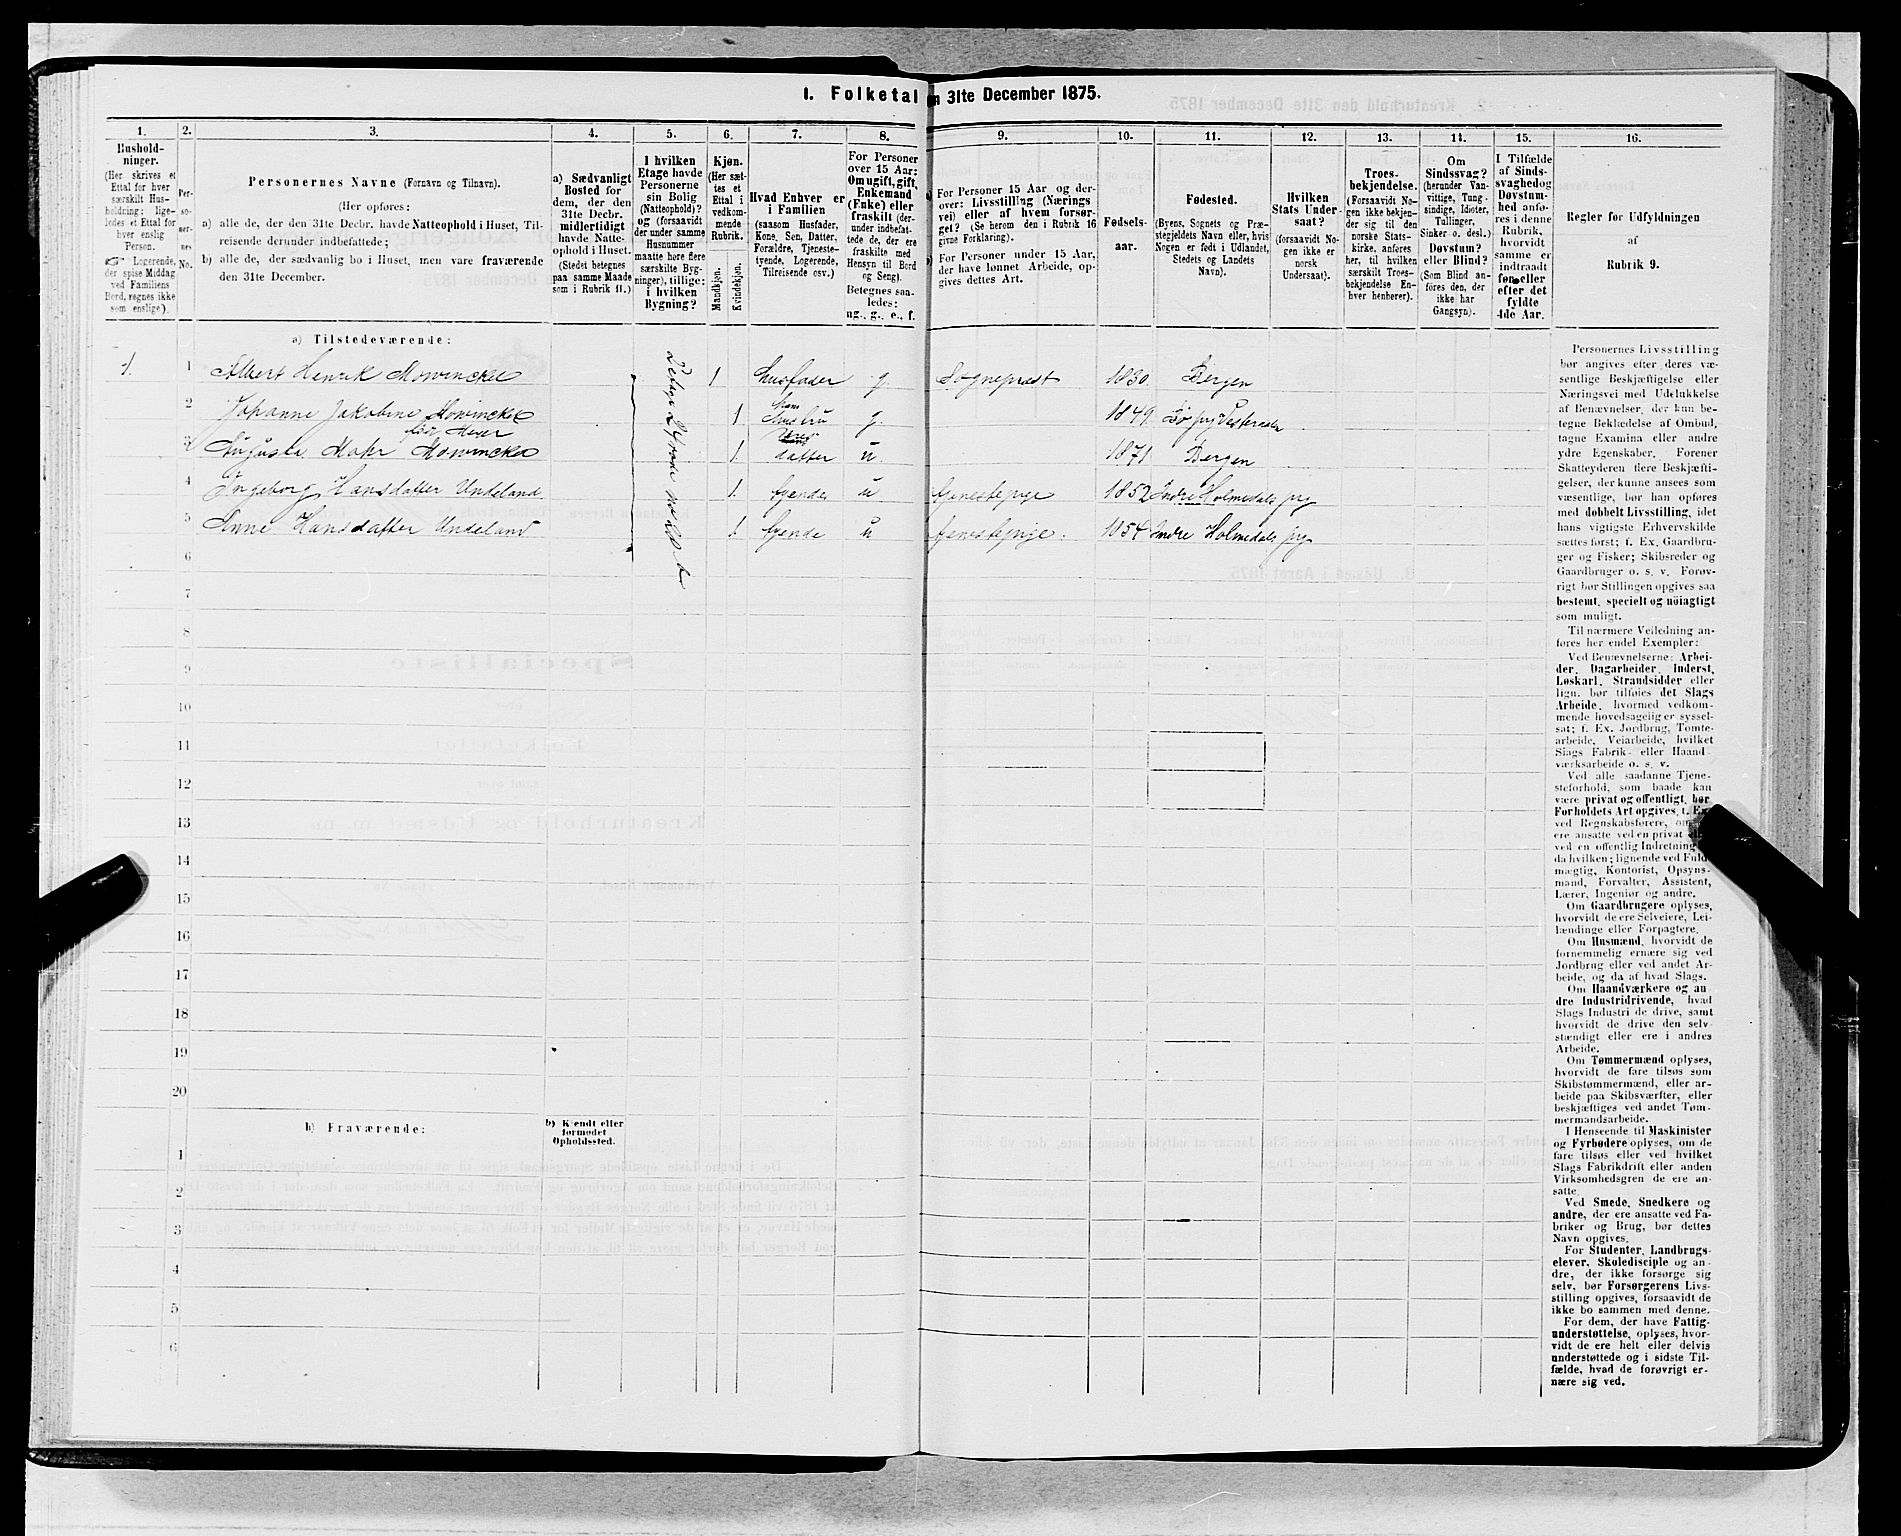 1. Folketal
n 31te December 1875.
1.
Hushold-
ninger.
(Her skrives et
Ettal for hver
særskilt Hus-
holdning; lige-
ledes et Ettal for
hver enslig
Person.
Logerende,
der spise Middag
ved Familiens
Bord, regnes ikke
som enslige).
2.
Per-
so-
ner-
nes
No.
3.
Personernes Navne (Fornavn og Tilnavn).
(Her opføres:
a) alle de, der den 31te Decbr. havde Natteophold i Huset, Til-
reisende derunder indbefattede;
b) alle de, der sædvanlig bo i Huset, men vare fraværende
den 31te December.
4.
a) Sædvanligt
Bosted for
dem, der den
31te Decbr.
midlertidigt
havde Natte-
ophold i Huset.
(Stedet betegnes
paa samme Maade
som i Rubrik 11.)
5.
I hvilken
Etage havde
Personerne
sin Bolig
(Natteophold)?
og (forsaavidt
der under samme
Husnummer
maatte høre flere
særskilte Byg-
ninger), tillige:
i hvilken
Bygning?
6.
Kjøn.
(Her sæt-
tes et
Ettal i
vedkom-
mende
Rubrik.
Mandkjøn.
Kvindekjøn.
7.
Hvad Enhver er
i Familien
(saasom Husfader,
Kone, Søn, Datter,
Forældre, Tjeneste-
tyende, Logerende,
Tilreisende osv.)
8.
For Personer
over 15 Aar:
Om ugift, gift,
Enkemand
(Enke) eller
fraskilt (der-
under indbefat-
tede de, der ere
fraskilte med
Hensyn til Bord
og Seng).
Betegnes saa-
ledes:
ug., g., e., f.
9.
a) For Personer 15 Aar og der-
over: Livsstilling (Nærings
vei) eller af hvem forsør-
get? (Se herom den i Rubrik 16
givne Forklaring).
b) For Personer under 15 Aar,
der have lønnet Arbeide, op-
gives dettes Art.
10.
Fødsels-
aar.
11.
Fødested.
(Byens, Sognets og Præ-
stegjeldets Navn eller, hvis
Nogen er født i Udlandet,
Stedets og Landets
Navn).
12.
Hvilken
Stats Under-
saat?
(forsaavidt No-
gen ikke er
norsk
Undersaat).
13.
Troes-
bekjendelse.
(Forsaavidt No-
gen ikke bekjen-
der sig til den
norske Stats-
kirke, anføres
her, til hvilken
særskilt Troes-
bekjendelse En-
hver henhører).
14.
Om
Sindssvag?
(herunder Van-
vittige, Tung-
sindige, Idioter,
Tullinger,
Sinker o. desl.)
Døvstum?
eller Blind?
(Som Blind an-
føres den, der
ikke har
Gangsyn).
15.
I Tilfælde
af Sinds-
svaghed og
Døvstum-
hed anfø-
res i denne
Rubrik,
hvorvidt
samme er
indtraadt
før eller
efter det
fyldte
4de Aar.
16.
Regler for Udfyldningen
af
Rubrik 9.
a) Tilstedeværende:
1. 1 Albert Henrik Mowinckel 1 Husfader g. Sognepræst 1830. Bergen
2 Johanne Jakobine Mowinckel
født Meyer 1 Hustru g. 1849. Bø prg Vesteraalen
3 Augusta Mohr Mowinckel 1. datter u 1871 Bergen
4 Ingeborg Hansdatter Undeland 1. tjende u tjenestepige 1852 Indre Holmedals prg
5 Anne Hansdatter Undeland 1. tjende u tjenestepige. 1854 Indre Holmedals prg
6
7
8
9
10
11
12
13
14
15
16
17
18
19
20
b) Fraværende:
b) Kjendt eller
formodet
Opholdssted.
1
2
3
4
5
6
Personernes Livsstilling
bør angives efter deres væ-
sentlige Beskjæftigelse eller
Næringsvei med Udelukkelse
af Benævnelser, der kun be-
tegne Beklædelse af Ombud,
tagne Examina eller andre
ydre Egenskaber. Forener
Skatteyderen flere Beskjæfti-
gelser, der kunne ansees som
væsentlige, bør han opføres
med dobbelt Livsstilling, idet
hans vigtigste Erhvervskilde
sættes først; f. Ex. Gaardbru-
ger og Fisker; Skibsreder og
Gaardbruger o. s. v. Forøv-
rigt bør Stillingen opgives saa
bestemt, specielt og nöiagtigt
som muligt.
Til nærmere Veiledning an-
føres her endel Exempler:
Ved Benævnelserne: Arbei-
der, Dagarbeider, Inderst,
Løskarl, Strandsidder eller
lign. bør tilføies det Slags
Arbeide, hvormed vedkom-
mende hovedsagelig er syssel-
sat; f. Ex. Jordbrug, Tomte-
arbeide, Veiarbeide, hvilket
Slags Fabrik- eller Haand-
værksarbeide o. s. v.
Ved alle saadanne Tjene-
steforhold, som baade kan
være privat og offentligt, bør
Forholdets Art opgives, f. Ex.
ved Regnskabsførere, om
ere ansatte ved en privat
ved en offentlig Indretning
da hvilken; lignende ved Fuld-
mægtig, Kontorist, Opsyns-
mand, Forvalter, Assistent,
Lærer, Ingeniør og andre.
Om Gaardbrugere oplyses,
hvorvidt de ere Selveiere, Lei-
lændinge eller Forpagtere.
Om Husmænd, hvorvidt de
fornemmelig ernære sig ved
Jordbrug eller ved andet Ar-
beide, og da af hvad Slags.
Om Haandværkere og an-
dre Industridrivende, hvad
Slags Industri de drive, samt
hvorvidt de drive den selv-
stændigt eller ere i andres
Arbeide.
Om Tømmermænd oplyses,
hvorvidt de fare tilsøs som
Skibstømmermænd, eller ar-
beide paa Skibsværfter, eller
beskjæftiges ved andet Tøm-
mermandsarbeide.
I Henseende til Maskinister
og Fyrbødere oplyses, om de
fare tilsøs eller ved hvilket
Slags Fabrikdrift eller anden
Virksomhedsgren de ere an-
satte.
Ved Smede, Snedkere og
andre, der ere ansatte ved Fa-
briker og Brug, bør dettes
Navn opgives.
For Studenter, Landbrugs-
elever, Skoledisciple og an-
dre, der ikke forsørge sig
selv, bør Forsørgerens Livs-
stilling opgives, forsaavidt de
ikke bo sammen med denne.
For dem, der have Fattig-
understøttelse, oplyses, hvor-
vidt de ere helt eller delvis
understøttede og i sidste Til-
fælde, hvad de forøvrigt er-
nære sig ved.